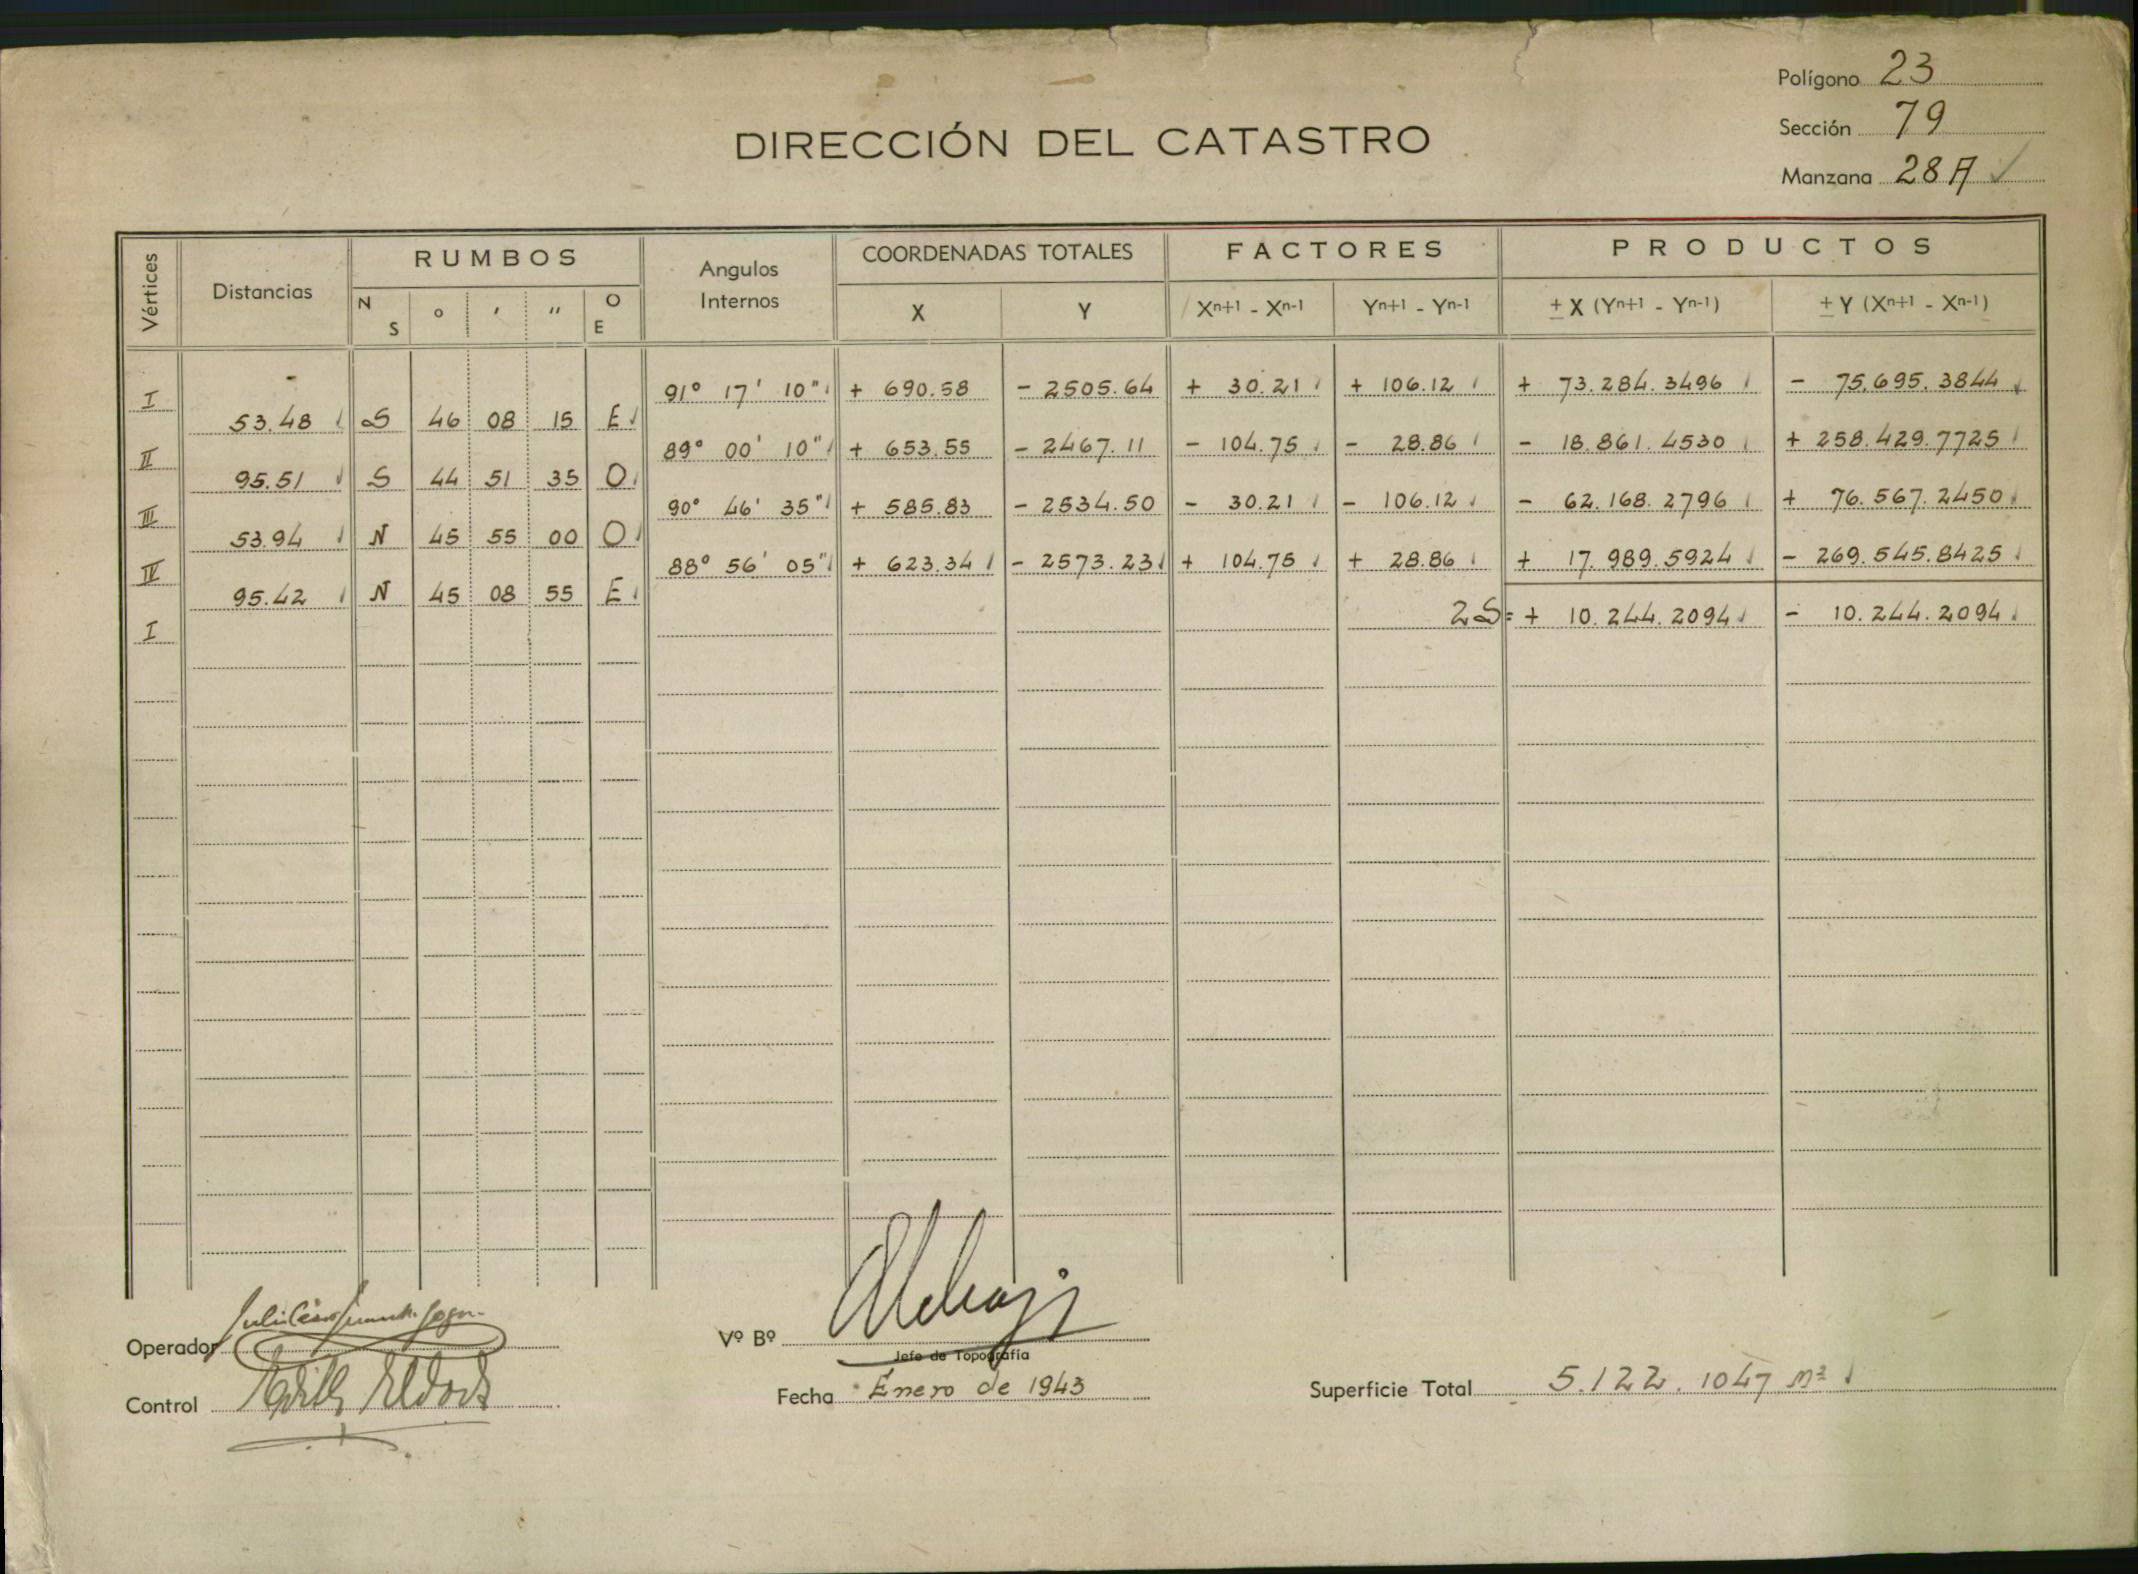 Polígono 23
DIRECCIÓN DEL CATASTRO
Sección 79
Manzana 28A ✓
Vértices Distancias RUMBOS Angulos Internos COORDENADAS TOTALES FACTORES PRODUCTOS
N S ° ' " O E X Y Xⁿ⁺¹ - Xⁿ⁻¹ Yⁿ⁺¹ - Yⁿ⁻¹ ± X (Yⁿ⁺¹ - Yⁿ⁻¹) ± Y (Xⁿ⁺¹ - Xⁿ⁻¹)
I 91° 17' 10" + 690.58 - 2505.64 + 30.21 + 106.12 + 73.284.3496 - 75.695.3844
53.48 S 46 08 15 E
II 89° 00' 10" + 653.55 - 2467.11 - 104.75 - 28.86 - 18.861.4530 + 258.429.7725
95.51 S 44 51 35 O
III 90° 46' 35" + 585.83 - 2534.50 - 30.21 - 106.12 - 62.168.2796 + 76.567.2450
53.94 N 45 55 00 O
IV 88° 56' 05" + 623.34 - 2573.23 + 104.75 + 28.86 + 17.989.5924 - 269.545.8425
95.42 N 45 08 55 E
I 2S= + 10.244.2094 - 10.244.2094
Operador
Vº Bº
Jefe de Topografía
Control
Fecha Enero de 1943
Superficie Total 5.122.1047 m²